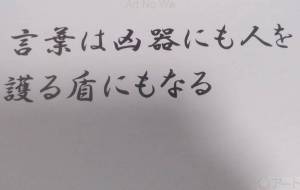 Art No Wa
言葉は凶器にも人を
護る盾にもなる
アート